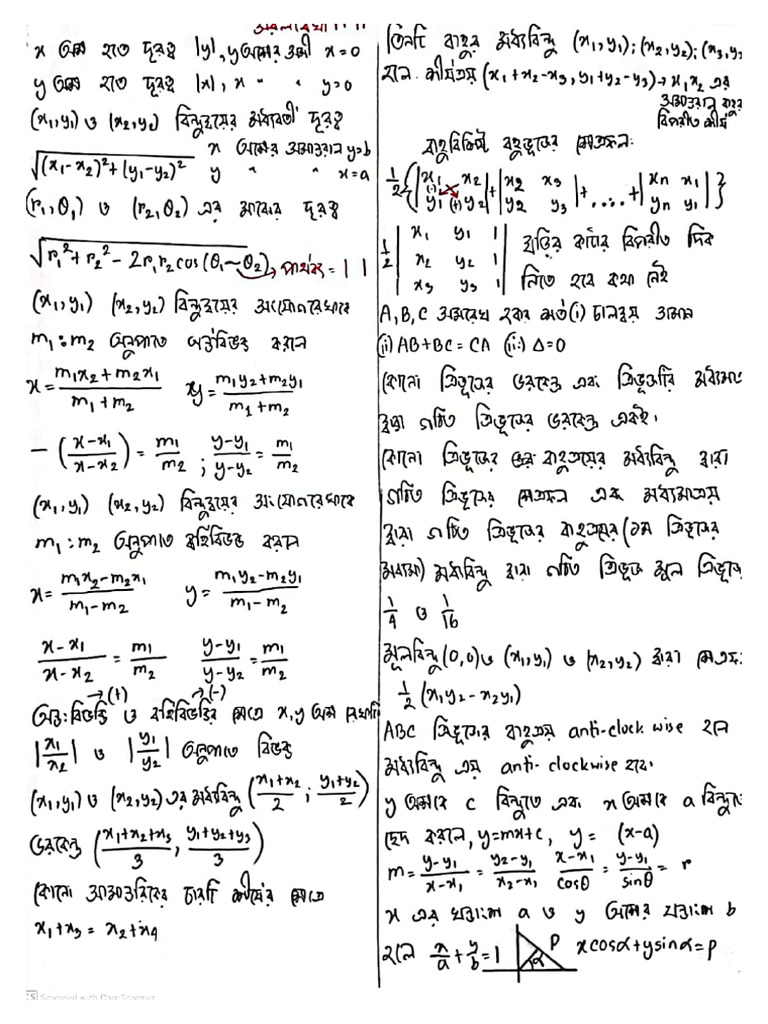 সরলরেখা
x অক্ষ হতে দূরত্ব |y|, y অক্ষের সমী x=0
y অক্ষ হতে দূরত্ব |x|, x " " y=0
(x₁,y₁) ও (x₂,y₂) বিন্দুদ্বয়ের মধ্যবর্তী দূরত্ব
√((x₁-x₂)²+(y₁-y₂)²) x অক্ষের সমান্তরাল y=b
y " " x=a
(r₁,θ₁) ও (r₂,θ₂) এর মাঝের দূরত্ব
√(r₁²+r₂²-2r₁r₂cos(θ₁~θ₂)) → পার্থক্য = | |
(x₁,y₁) (x₂,y₂) বিন্দুদ্বয়ের সংযোগরেখাকে
m₁:m₂ অনুপাতে অন্তর্বিভক্ত করলে
x = (m₁x₂+m₂x₁)/(m₁+m₂) y = (m₁y₂+m₂y₁)/(m₁+m₂)
-((x-x₁)/(x-x₂)) = m₁/m₂ ; (y-y₁)/(y-y₂) = m₁/m₂
(x₁,y₁) (x₂,y₂) বিন্দুদ্বয়ের সংযোগরেখাকে
m₁:m₂ অনুপাতে বহির্বিভক্ত করলে
x = (m₁x₂-m₂x₁)/(m₁-m₂) y = (m₁y₂-m₂y₁)/(m₁-m₂)
(x-x₁)/(x-x₂) = m₁/m₂ (y-y₁)/(y-y₂) = m₁/m₂
→(+) →(-)
অন্তঃবিভক্তি ও বহির্বিভক্তির ক্ষেত্রে x,y অক্ষ
|x₁/x₂| ও |y₁/y₂| অনুপাতে বিভক্ত
(x₁,y₁) ও (x₂,y₂) এর মধ্যবিন্দু ((x₁+x₂)/2 ; (y₁+y₂)/2)
ভরকেন্দ্র ((x₁+x₂+x₃)/3, (y₁+y₂+y₃)/3)
কোনো সামান্তরিকের চারটি শীর্ষের ক্ষেত্রে
x₁+x₃ = x₂+x₄
তিনটি বাহুর মধ্যবিন্দু (x₁,y₁); (x₂,y₂); (x₃,y₃
হলে শীর্ষত্রয় (x₁+x₂-x₃, y₁+y₂-y₃) → x₁x₂ এর
সমান্তরাল বাহুর
বিপরীত শীর্ষ
বাহুবিশিষ্ট বহুভূজের ক্ষেত্রফল:
1/2 {|x₁ x₂; y₁ y₂| + |x₂ x₃; y₂ y₃| + ..... + |xn x₁; yn y₁|}
1/2 |x₁ y₁ 1; x₂ y₂ 1; x₃ y₃ 1| ঘড়ির কাটার বিপরীত দিক
নিতে হবে কথা নেই
A,B,C সমরেখ হবার শর্ত (i) ঢালদ্বয় সমান
(ii) AB+BC=CA (iii) Δ=0
কোনো ত্রিভূজের ভরকেন্দ্র এবং ত্রিভূজটির মধ্যমা
দ্বারা গঠিত ত্রিভূজের ভরকেন্দ্র একই।
কোনো ত্রিভূজের বাহুত্রয়ের মধ্যবিন্দু দ্বারা
গঠিত ত্রিভূজের ক্ষেত্রফল এবং মধ্যমাত্রয়
দ্বারা গঠিত ত্রিভূজের বাহুত্রয়ের (১ম ত্রিভূজের
মধ্যমা) মধ্যবিন্দু দ্বারা গঠিত ত্রিভূজ মূল ত্রিভূজে
1/4 ও 1/16
মূলবিন্দু (0,0) ও (x₁,y₁) ও (x₂,y₂) দ্বারা ক্ষেত্রফ
1/2 (x₁y₂-x₂y₁)
ABC ত্রিভূজের বাহুত্রয় anti-clock wise হলে
মধ্যবিন্দু ত্রয় anti-clockwise হবে।
y অক্ষকে c বিন্দুতে এবং x অক্ষকে a বিন্দুতে
ছেদ করলে, y=mx+c, y = (x-a)
m = (y-y₁)/(x-x₁) = (y₂-y₁)/(x₂-x₁) = (x-x₁)/cosθ = (y-y₁)/sinθ = r
x এর খন্ডাংশ a ও y অক্ষের খন্ডাংশ b
হলে x/a + y/b = 1 P α xcosα+ysinα=p
CS Scanned with CamScanner